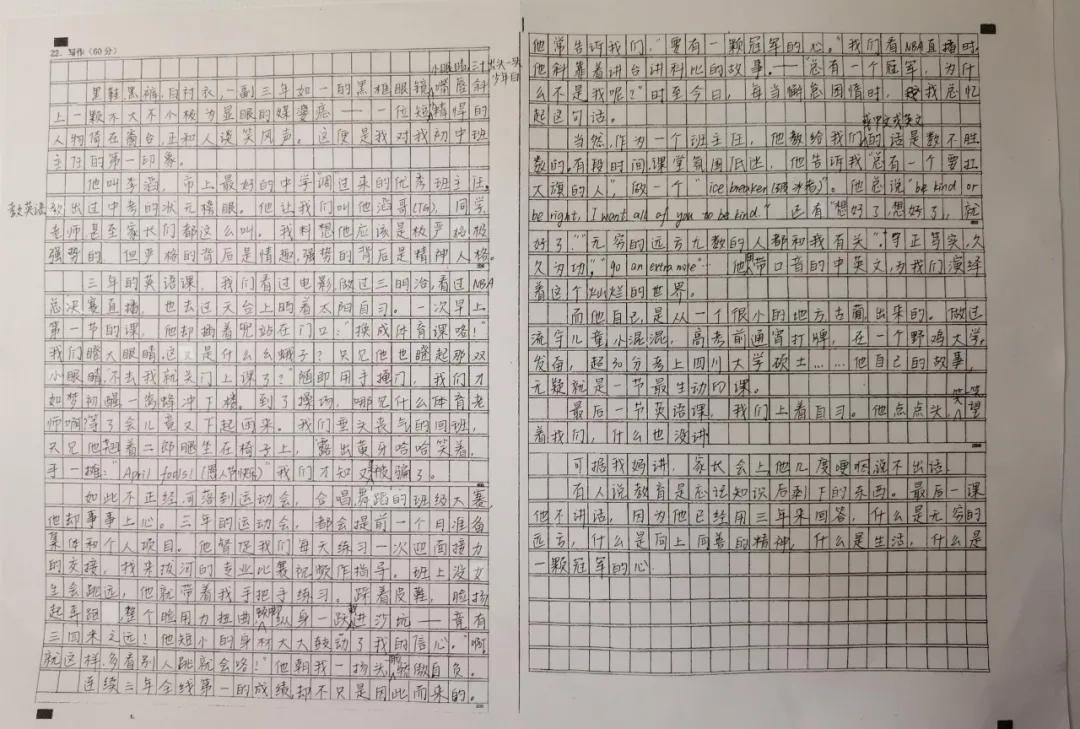 22. 写作（60分）
小眼睛，三十出头一头
少年白
黑鞋黑裤，白衬衣，一副三年如一的黑框眼镜，嘴唇斜
上一颗不大不小极为显眼的媒婆痣——一位短小精悍的
人物倚在窗台，正和人谈笑风声。这便是我对我初中班
主任的第一印象。
他叫李涵，市上最好的中学调过来的优秀班主任。
教英语，教出过中考的状元榜眼。他让我们叫他涵哥(TG)，同学，
老师甚至家长们都这么叫。我料想他应该是极严格极
强势的，但严格的背后是情趣，强势的背后是精神人格。
三年的英语课，我们看过电影，做过三明治，看过NBA
总决赛直播，也去过天台上晒着太阳自习。一次早上
第一节的课，他却插着兜站在门口："换成体育课咯！"
我们瞪大眼睛，这又是什么幺蛾子？只见他也瞪起那双
小眼睛，"不去我就关门上课了？"随即用手掩门，我们才
如梦初醒一窝蜂冲下楼。到了操场，哪见什么体育老
师啊，等了会儿竟又下起雨来。我们垂头丧气的回班，
只见他翘着二郎腿坐在椅子上，露出黄牙哈哈笑着，
手一摊："April fools!（愚人节快乐）"我们才知又被骗了。
如此不正经，可落到运动会，合唱，舞蹈的班级大赛，
他却事事上心。三年的运动会，都会提前一个月准备
集体和个人项目。他督促我们每天练习一次迎面接力
的交接，找来拔河的专业比赛视频作指导。班上没女
生会跳远，他就带着我手把手练习。踩着皮鞋，脸扬
起，弄距，整个脸用力扭曲，纵身一跃，进沙坑——竟有
三四米之远！他短小的身材大大鼓动了我的信心。"啊，
就这样，多看别人跳就会咯！"他朝我一扬头，骄傲自负。
连续三年全线第一的成绩，却不只是因此而来的。
他常告诉我们，"要有一颗冠军的心。"我们看NBA直播时，
他斜靠着讲台讲科比的故事。——"总有一个冠军，为什
么不是我呢？"时至今日，每当懈怠困惰时，我总忆
起这句话。
当然，作为一个班主任，他教给我们的话是数不胜
数的。有段时间，课堂氛围低迷，他告诉我"总有一个要扛
大旗的人"，做一个"icebreaker(破冰者)"。他总说"be kind or
be right, I want all of you to be kind." 还有"想好了，想好了，就
好了""无穷的远方无数的人都和我有关"，"守正笃实，久
久为功，""go an extra mile"…他用带口音的中英文，为我们演绎
着这个灿烂的世界。
而他自己，是从一个很小的地方走出来的。做过
流守儿童，小混混，高考前通宵打牌，在一个野鸡大学，
发奋，超30分考上四川大学硕士……他自己的故事，
无疑就是一节最生动的课。
最后一节英语课，我们上着自习。他点点头，笑一笑，望
着我们，什么也没讲。
可据我妈讲，家长会上他几度哽咽说不出话。
有人说教育是忘记知识后剩下的东西。最后一课
他不讲话，因为他已经用三年来回答，什么是无穷的
远方，什么是向上向善的精神，什么是生活，什么是
一颗冠军的心。